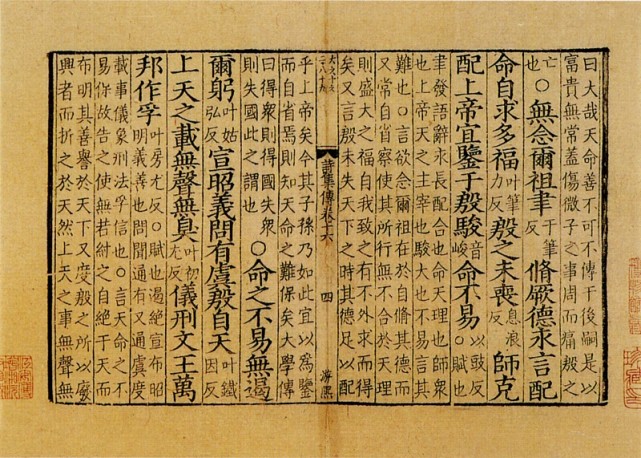 曰大哉天命善不可不傳于後嗣是以
富貴無常蓋傷微子之事周而痛殷之
亡也○無念爾祖聿于筆反脩厥德永言配
命自求多福叶筆力反殷之未喪息浪反師克
配上帝宜鑒于殷駿音峻命不易以豉反○賦也
聿發語辭永長配合也命天理也師衆
也上帝天之主宰也駿大也不易言其
難也○言欲念爾祖在於自脩其德而
又常自省察使其所行無不合於天理
則盛大之福自我致之有不外求而得
矣又言殷未失天下之時其德足以配
詩集傳卷十六
四
游熙
乎上帝矣今其子孫乃如此宜以爲鑒
而自省焉則知天命之難保矣大學傳
曰得衆則得國失衆則失國此之謂也○命之不易無遏
爾躬叶姑弘反宣昭義問有虞殷自天叶鐵因反
上天之載無聲無臭叶初尤反儀刑文王萬
邦作孚叶房尤反○賦也遏絶宣布昭明義善也問聞通有又通虞度
載事儀象刑法孚信也○言天命之不
易保故告之使無若紂之自絶於天而
布明其善譽於天下又度殷之所以廢
興者而折之於天然上天之事無聲無